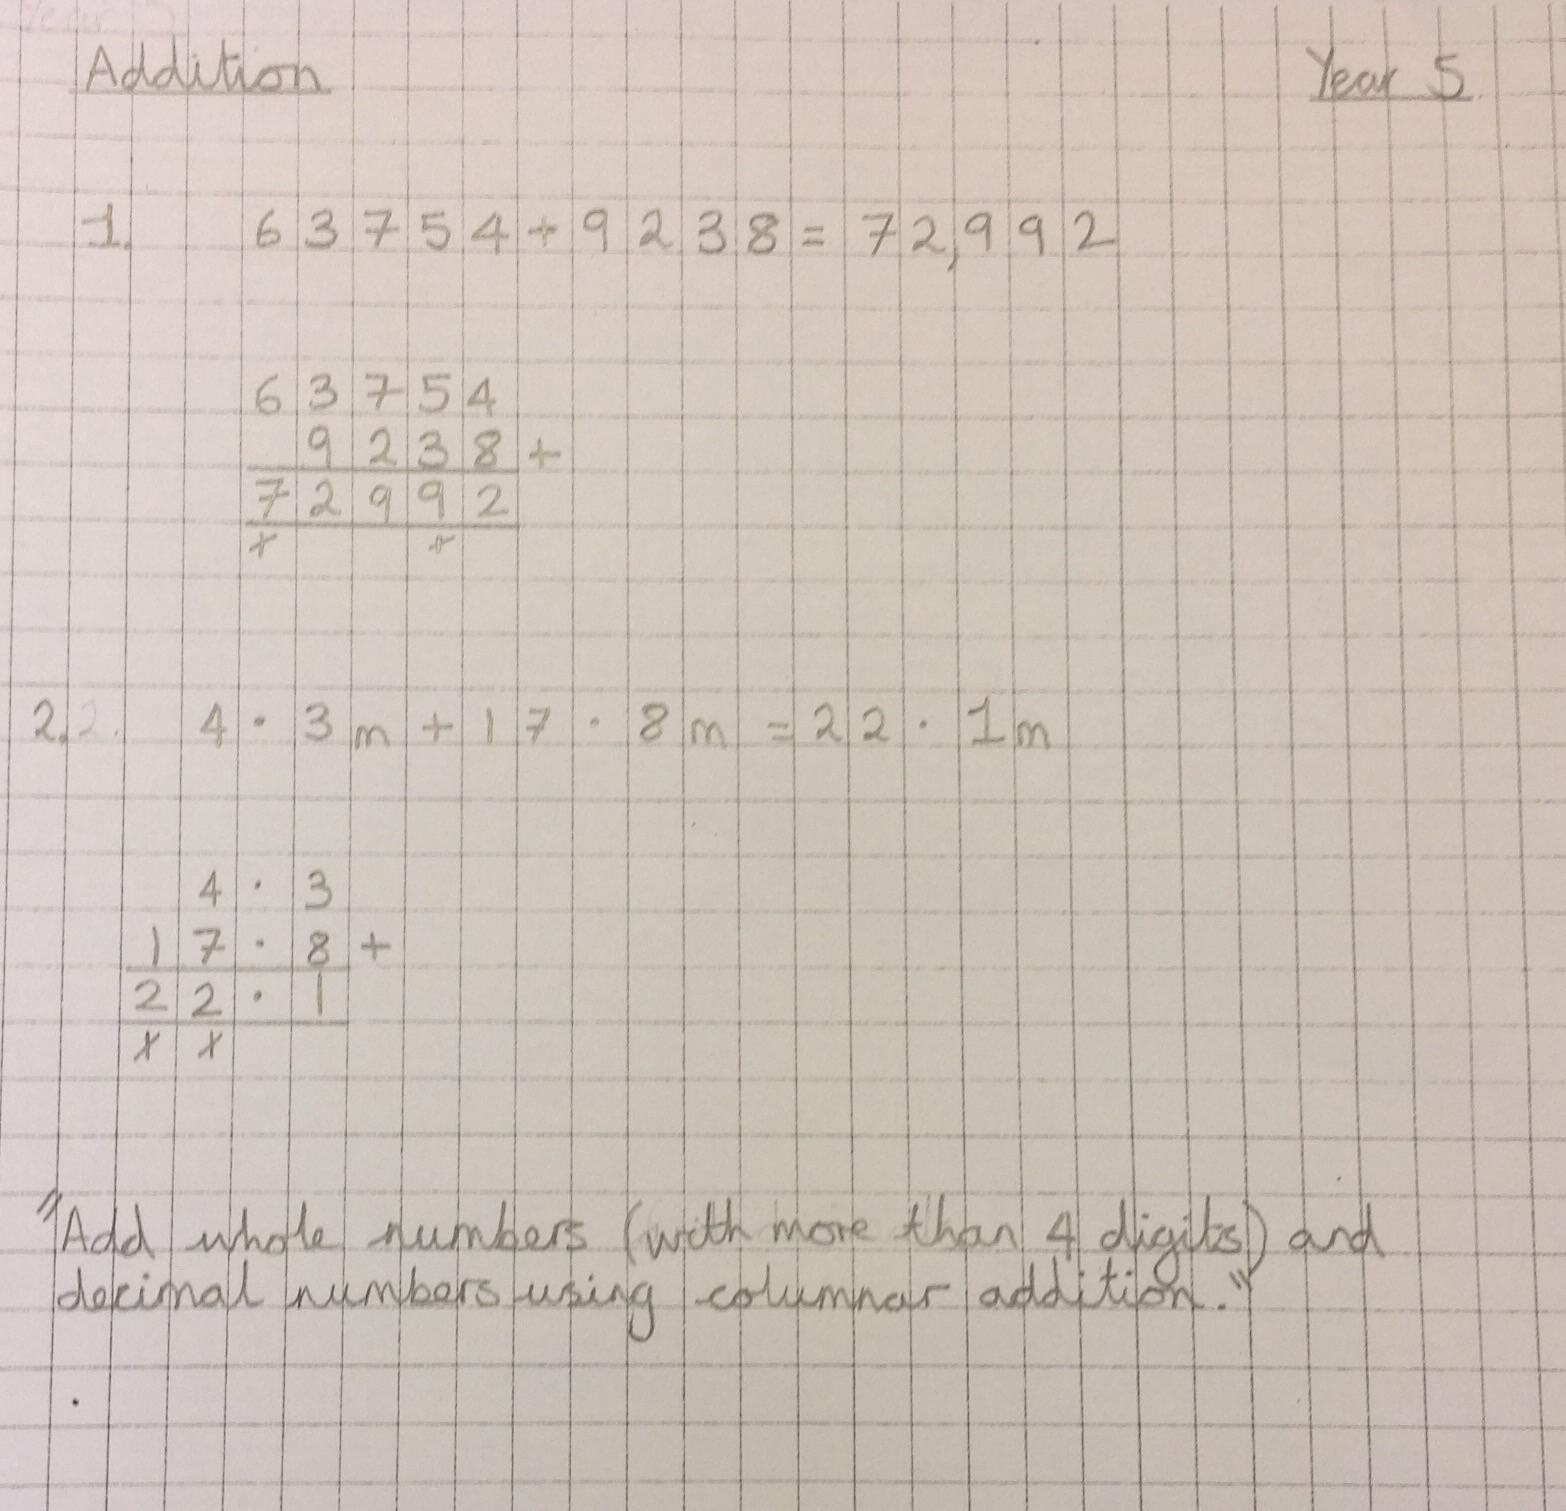 Addition Year 5
1. 63754+9238=72,992
63754
9238+
72992
1 1
2. 2. 4·3m+17·8m=22·1m
4·3
17·8+
22·1
1 1
"Add whole numbers (with more than 4 digits) and
decimal numbers using columnar addition."